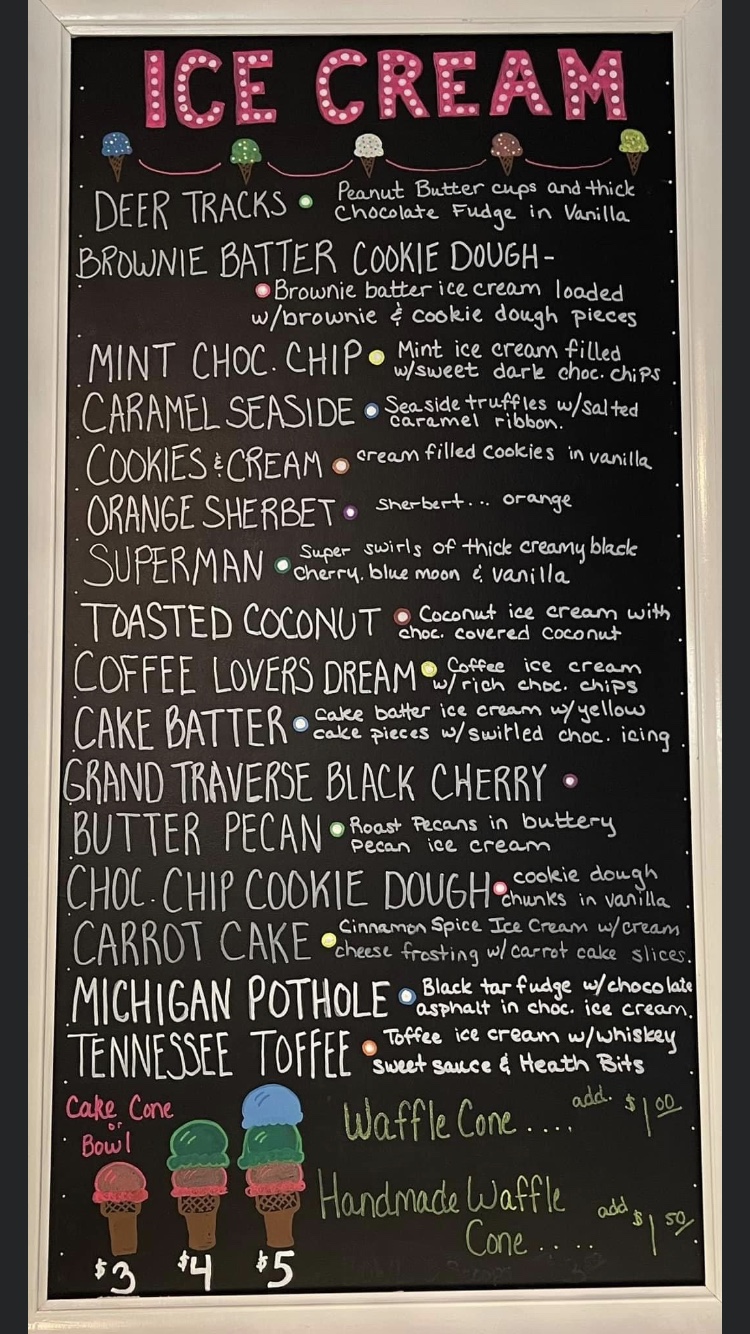 ICE CREAM
DEER TRACKS • Peanut Butter cups and thick
Chocolate Fudge in Vanilla
BROWNIE BATTER COOKIE DOUGH-
• Brownie batter ice cream loaded
w/brownie & cookie dough pieces
MINT CHOC. CHIP • Mint ice cream filled
w/sweet dark choc. chips
CARAMEL SEASIDE • Seaside truffles w/salted
caramel ribbon.
COOKIES & CREAM • cream filled cookies in vanilla
ORANGE SHERBET • sherbert... orange
SUPERMAN • Super swirls of thick creamy black
cherry, blue moon & vanilla
TOASTED COCONUT • Coconut ice cream with
choc. covered coconut
COFFEE LOVERS DREAM • Coffee ice cream
w/rich choc. chips
CAKE BATTER • cake batter ice cream w/yellow
cake pieces w/swirled choc. icing
GRAND TRAVERSE BLACK CHERRY •
BUTTER PECAN • Roast Pecans in buttery
pecan ice cream
CHOC. CHIP COOKIE DOUGH • cookie dough
chunks in vanilla
CARROT CAKE • Cinnamon Spice Ice Cream w/cream
cheese frosting w/carrot cake slices.
MICHIGAN POTHOLE • Black tar fudge w/chocolate
asphalt in choc. ice cream.
TENNESSEE TOFFEE • Toffee ice cream w/whiskey
sweet sauce & Heath Bits
Cake Cone
or
Bowl
$3 $4 $5
Waffle Cone .... add. $1 00
Handmade Waffle
Cone .... add $1 50